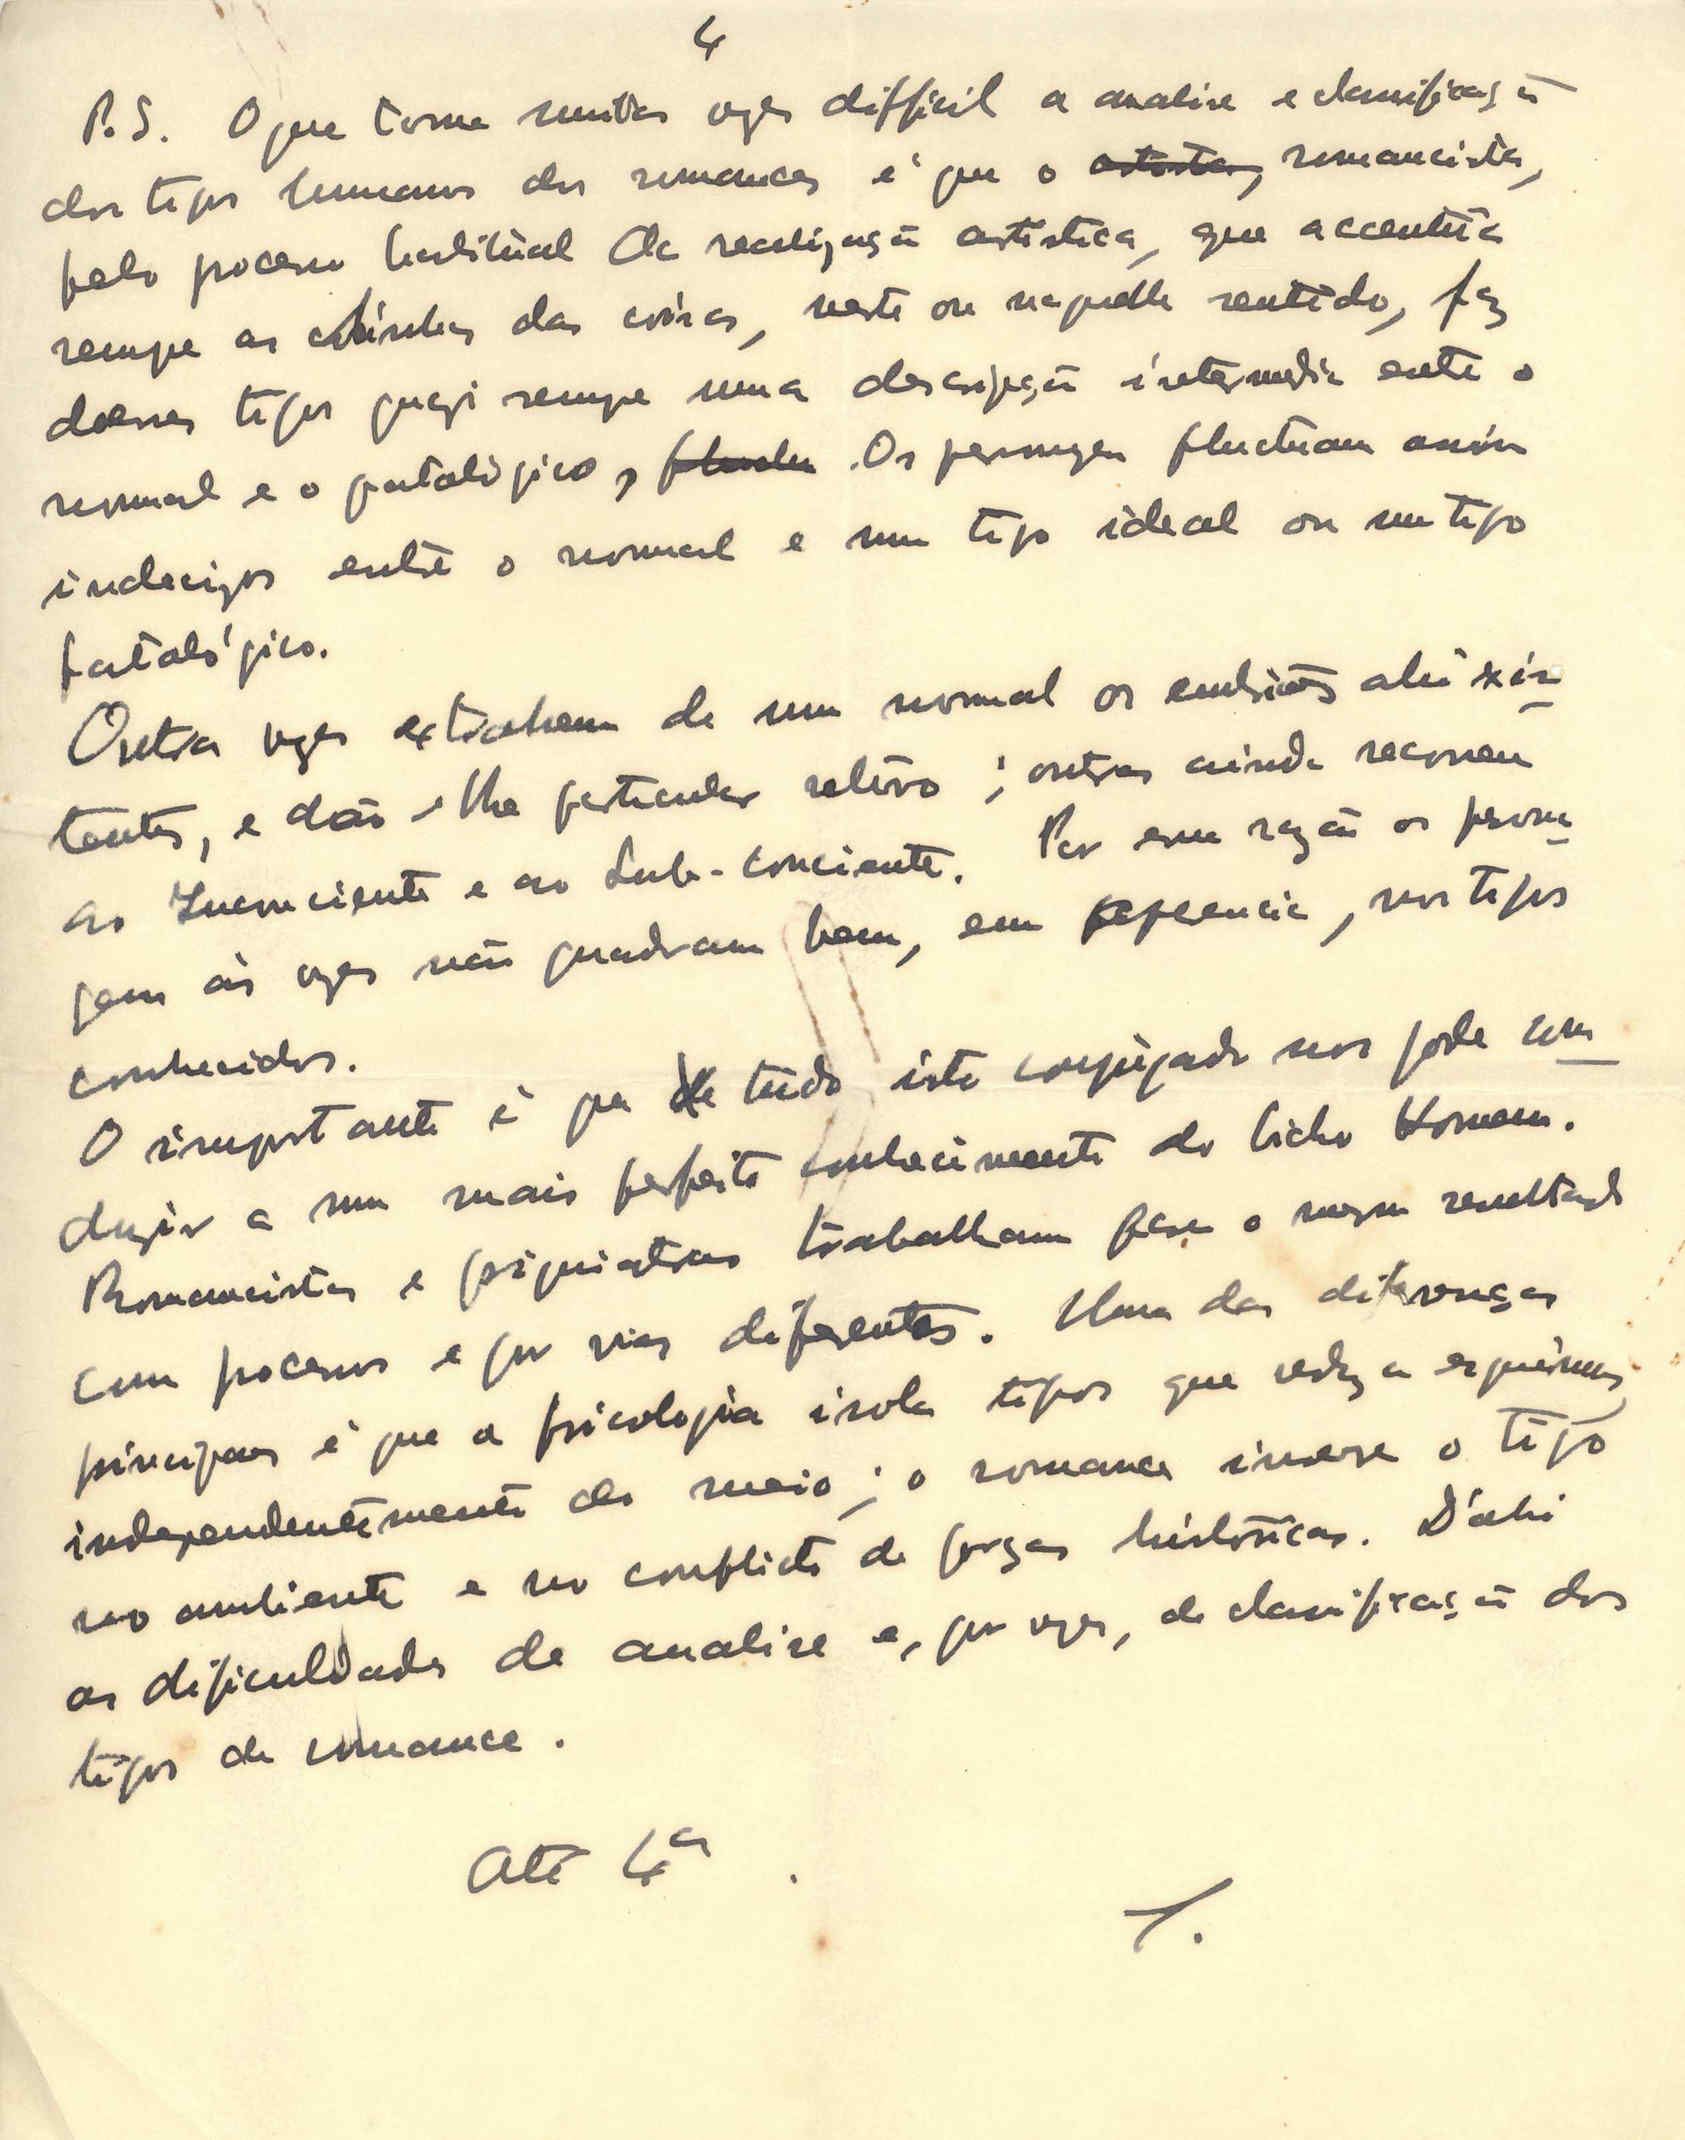 4
P.S. O que torna muitas vezes difficil a analise e classificação
dos tipos humanos dos romances é que o artista, romancista,
pelo processo habitual de realização artistica, que accentúa
sempre as linhas das coisas, neste ou naquelle sentido, faz
desses tipos quazi sempre uma descripção intermedia entre o
normal e o patalógico, . Os personagens fluctuam assim
indecizos entre o normal e um tipo ideal ou um tipo
patalógico.
Outras vezes extrahem de um normal os embriões ahi exis-
tentes, e dão-lhe particular relêvo; outros ainda recorrem
ao Inconsciente e ao Sub-conciente. Por essa razão os persona-
gens ás vezes não quadram bem, em apparencia, nos tipos
conhecidos.
O importante é que de tudo isto conjugado nos póde con-
duzir a um mais perfeito conhecimento do bicho Homem.
Romancistas e psiquiatras trabalham para o mesmo resultado
com processos e por vias diferentes. Uma das diferenças
principaes é que a psicologia isola tipos que reduz a esquemas,
independentemente do meio; o romance insere o tipo
no ambiente e no conflicto de forças históricas. D'ahi
as dificuldades de analise e, por vezes, de classificação dos
tipos de romance.
Até 4ª.
J.